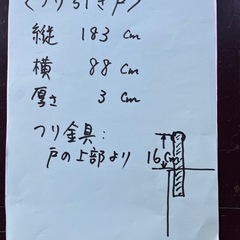 〈つり引き戸〉
縦 183 cm
横 88 cm
厚さ 3 cm
つり金具:
戸の上部より 16cm